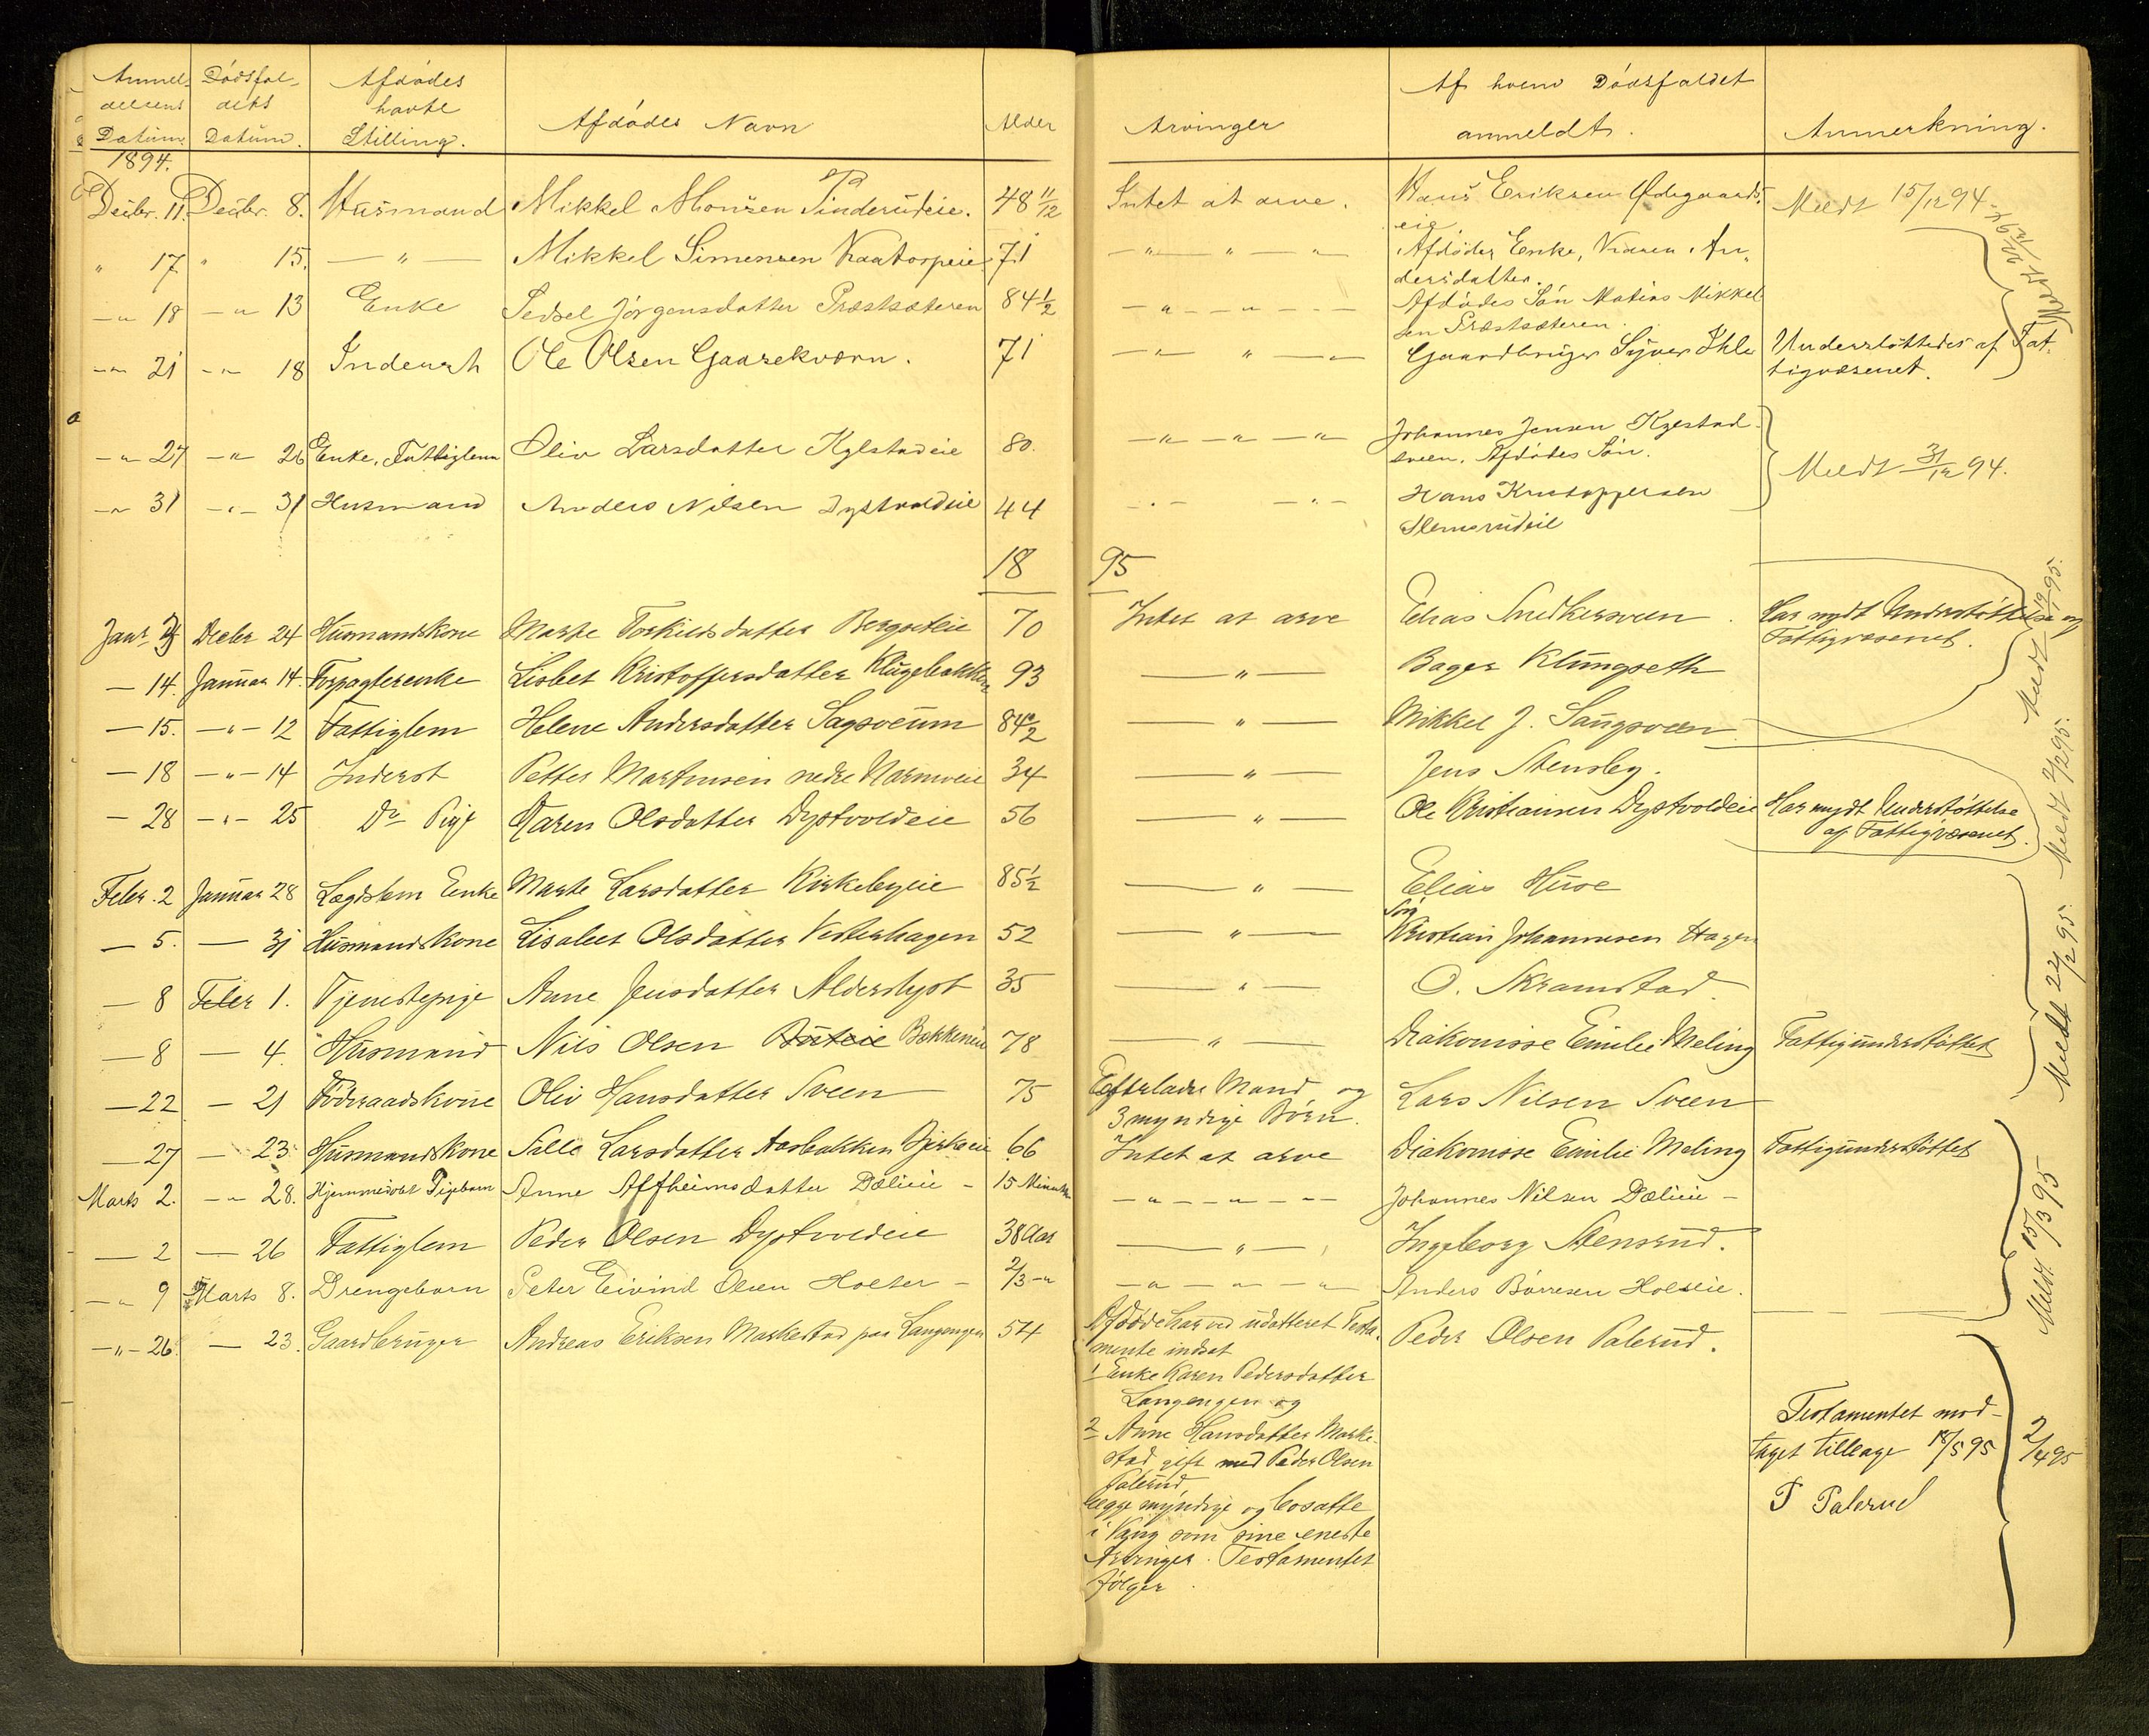 Anmel- Dødsfal- Afdødes Af hvem Dødsfaldet
delsens dets havte
Datum Datum. Stilling. Afdødes Navn Alder Arvinger anmeldt. Anmerkning.
1894.
Decbr. 11. Decbr. 8. Husmand Mikkel Monsen Sinderudeie. 48 11/12 Intet at arve. Hans Eriksen Ødegaards- Meldt 15/12 94
eie
" 17 " 15. — " — Mikkel Simensen Kaatorpeie 71 — " — " — " Afdødes Enke, Karen An-
dersdatter.
— " 18 — " 13 Enke Sedsel Jörgensdatter Præstsæteren 84 1/2 — " — " — Afdødes Søn Matias Mikkel-
sen Præstsæteren.
— " 21 — " 18 Inderst Ole Olsen Gaasekværn. 71 — " — " — " Gaardbruger Syver Ihle Understøttedes af Fat-
tigvæsenet.
— " 27 — " 26 Enke, Fattiglem Oliv Larsdatter Kylstadeie 80. — " — " — " Johannes Jensen Kylstad-
sveen, Afdødes Søn. Meldt 31/12 94.
— " 31 — " — 31 Husmand Anders Nilsen Dystvoldeie 44 — " — — " — Hans Kristoffersen
Stensrudeie
18 95
Janr 7 Decbr 24 Husmandskone Marte Torkildsdatter Bergseteie 70 Intet at arve Elias Snedkersveen. Har nydt Understøttelse af
Fattigvæsenet.
— 14. Januar 14. Forpagterenke Lisbet Kristoffersdatter Klugebakken 93 — " — Bager Klüngseth
— 15. — " — 12 Fattiglem Helene Andersdatter Sagsveum 84 1/2 — " — Mikkel J. Saugsveen
— 18 — " — 14 Inderst Petter Martinsen nedre Narmoeie 34 — " — Jens Stensby.
— 28 — " — 25 Do Pige Karen Olsdatter Dystvoldeie 56 — " — Ole Kristiansen Dystvoldeie Har nydt Understøttelse
af Fattigvæsenet.
Febr. 2 Januar 28 Lægdslem Enke Marte Larsdatter Kirkebyeie 85 1/2 — " — Elias Huse
— 5. — 31 Husmandskone Lisabet Olsdatter Vesterhagen 52 — " — Kristian Johannesen Hagen
— 8 Febr 1. Tjenestepige Anne Jensdatter Alderslyst 35 — " — O. Skramstad.
— 8 — 4. Husmand Nils Olsen Bækkeneie 78 — " — Diakonisse Emilie Meling Fattigunderstøttet
— 22 — 21 Føderaadskone Oliv Hansdatter Sveen 75 Efterlader Mand og Lars Nilsen Sveen
3 myndige Børn.
— 27 — 23 Husmandskone Sille Larsdatter Aasbakken Bjerkeeie 66 Intet at arve Diakonisse Emilie Meling Fattigunderstøttet
Marts 2. — " 28. Hjemmedøbt Pigebarn Anne Alfheimsdatter Dælieie – 15 Minutter — " — " — Johannes Nilsen Dælieie –
— 2 — 26 Fattiglem Peder Olsen Dystvoldeie 38 Aar — " — Ingeborg Stensrud.
— " 9 Marts 8. Drengebarn Peter Eivind Olsen Holter – 2/3 – " — " — " — " Anders Börresen Holseie.
— " — 26. — 23. Gaardbruger Andreas Eriksen Markestad paa Langengen 54 Afdøde har ved udstedt Testa- Peder Olsen Palerud.
mente indsat
1 Enke Karen Pedersdatter
Langengen og
2 Anne Hansdatter Marke-
stad gift med Peder Olsen
Palerud,
begge myndige og bosatte
i Vang som sine eneste
Arvinger. Testamentet
følger.
Testamentet mod-
taget tilbage 18/5 95
P Palerud
2/4 95
Meldt 22/12 94
Meldt 95.
Meldt 2/2 95.
Meldt 22/2 95.
Meldt 15/3 95